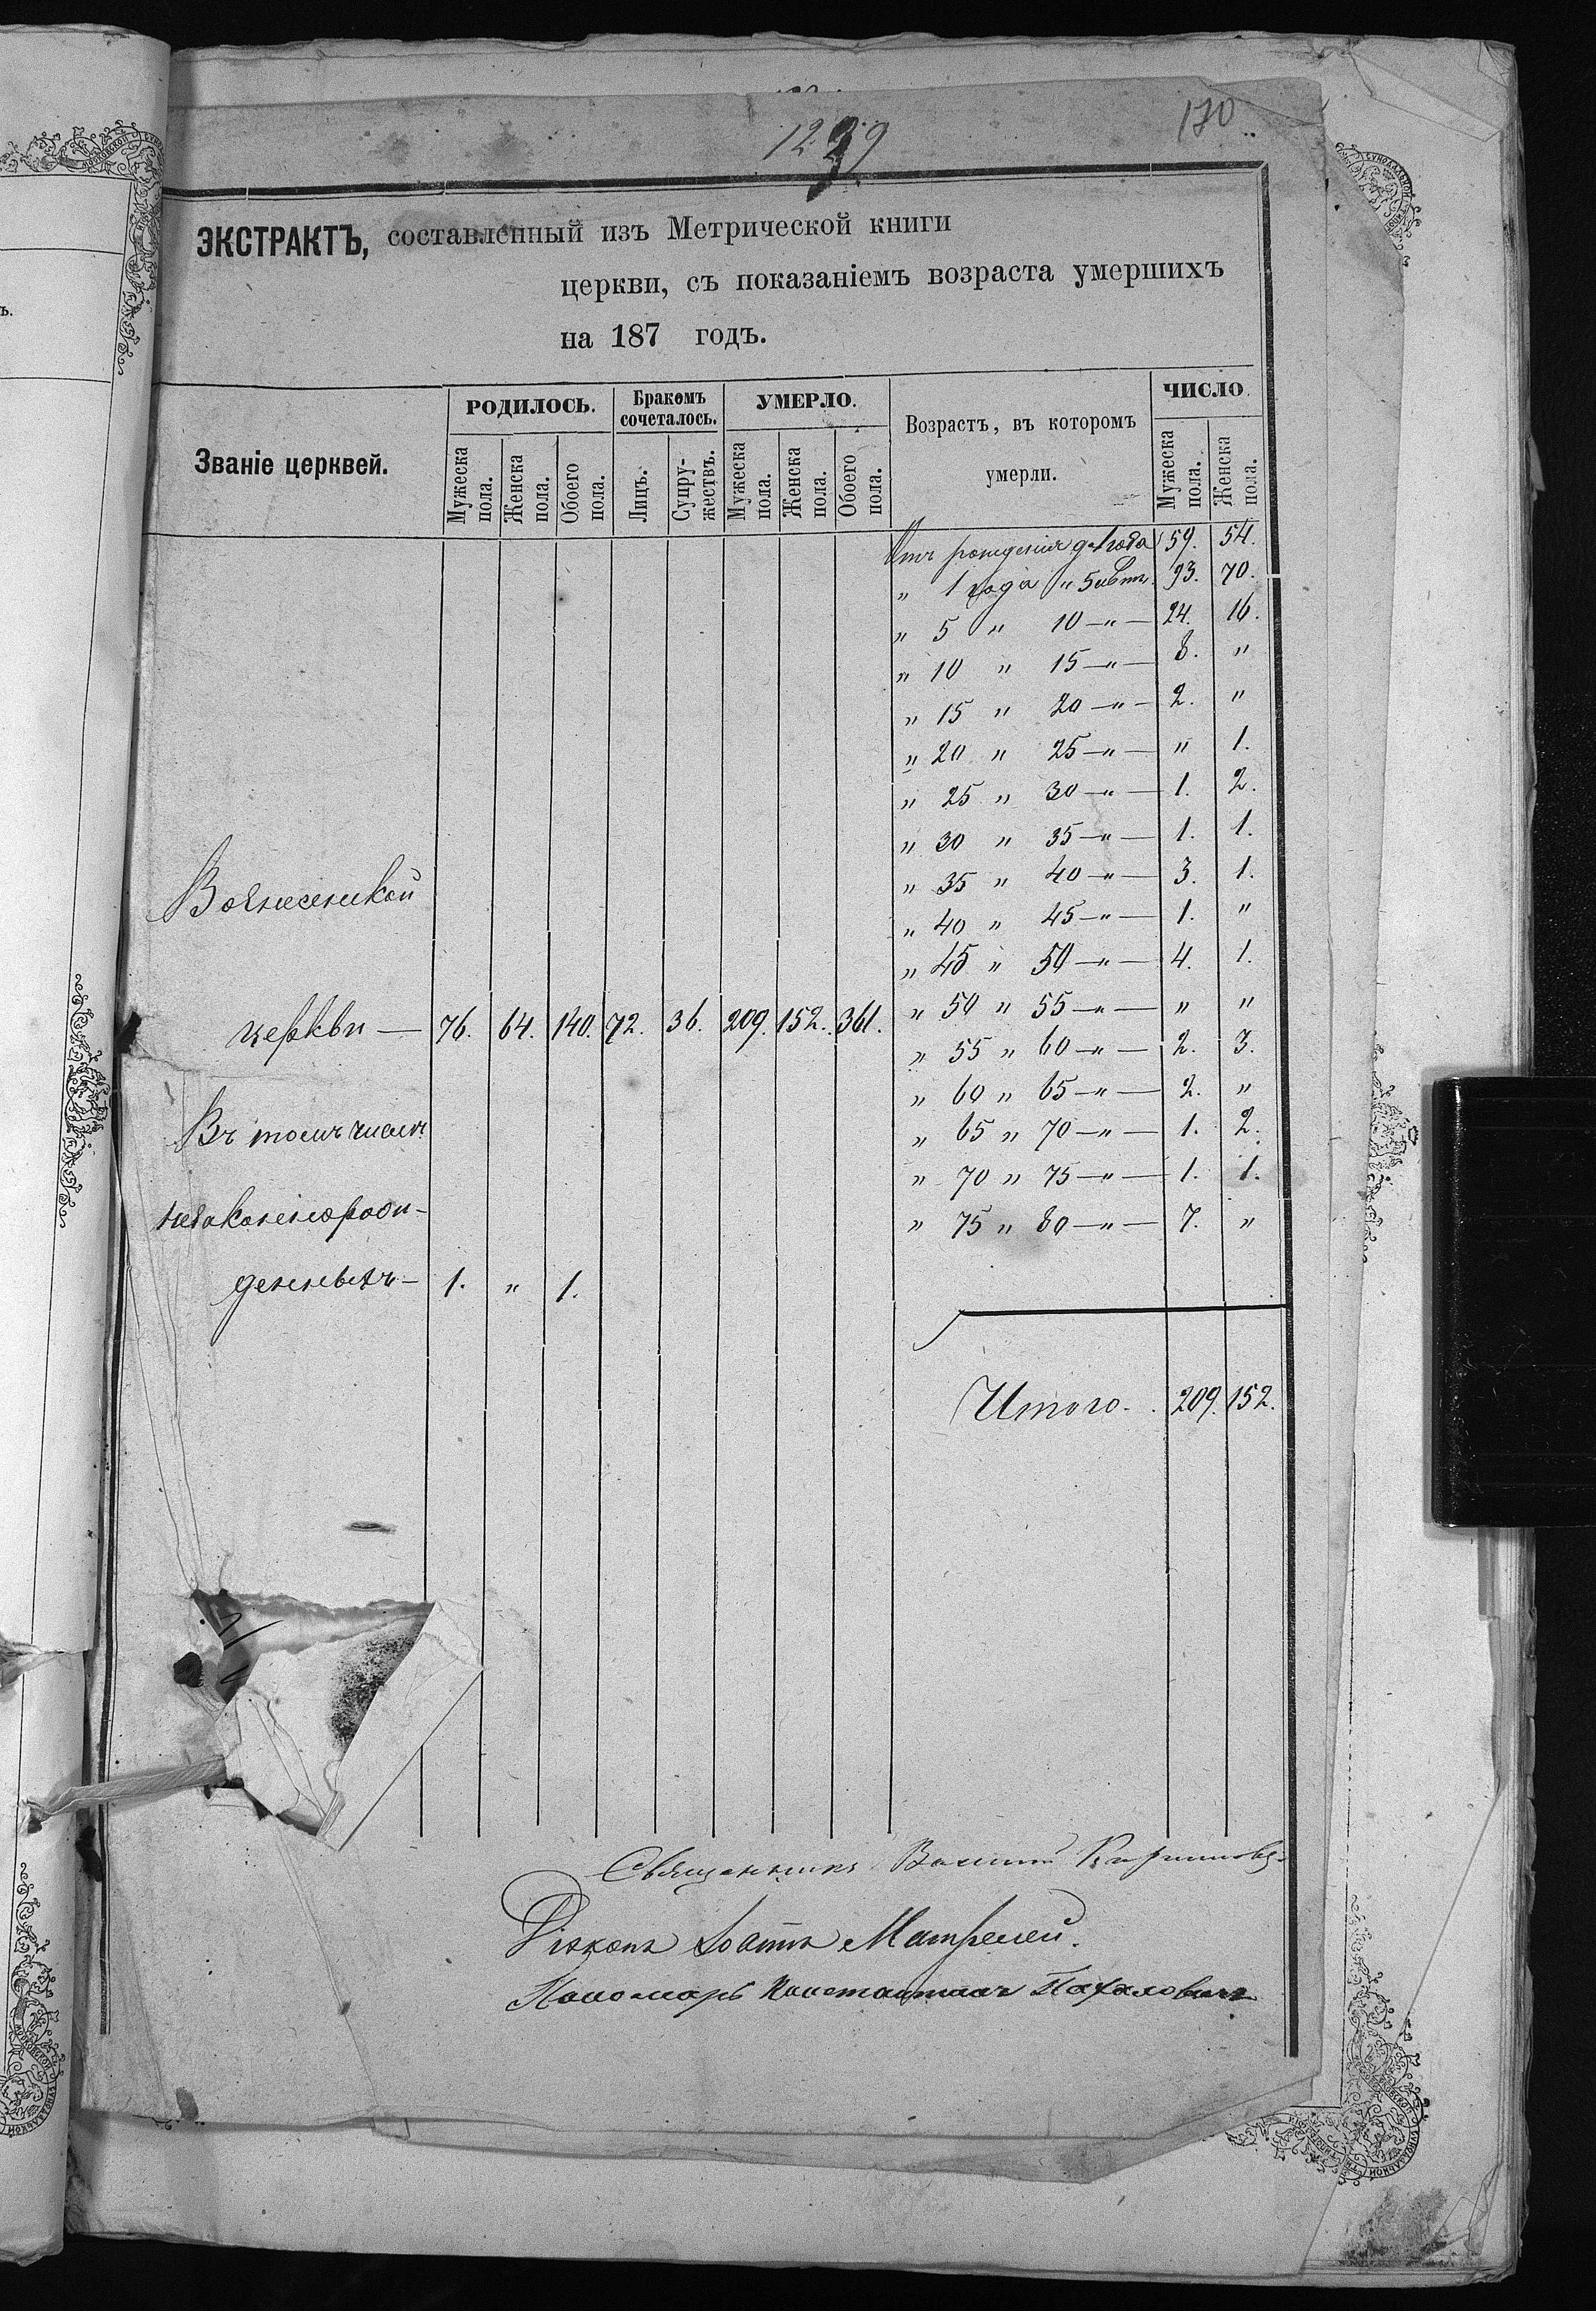 1239
170
ЭКСТРАКТЪ, составленный изъ Метрической книги
церкви, съ показаніемъ возраста умершихъ
на 187 годъ.
Званіе церквей.
РОДИЛОСЬ.
Бракомъ сочеталось.
УМЕРЛО.
Возрастъ, въ которомъ умерли.
ЧИСЛО.
Мужеска пола. Женска пола. Обоего пола. Лицъ. Супружествъ. Мужеска пола. Женска пола. Обоего пола. Мужеска пола. Женска пола.
Отъ рожденія до 1 года 59. 54.
" 1 года " 5 лѣтъ. 93. 70.
" 5 " 10 —"— 24. 16.
" 10 " 15 —"— 8. "
" 15 " 20 —"— 2. "
" 20 " 25 —"— " 1.
" 25 " 30 —"— 1. 2.
" 30 " 35 —"— 1. 1.
" 35 " 40 —"— 3. 1.
" 40 " 45 —"— 1. "
" 45 " 50 —"— 4. 1.
" 50 " 55 —"— " "
" 55 " 60 —"— 2. 3.
" 60 " 65 —"— 2. "
" 65 " 70 —"— 1. 2.
" 70 " 75 —"— 1. 1.
" 75 " 80 —"— 7. "
Вознесенской
церкви — 76. 64. 140. 72. 36. 209. 152. 361.
Въ томъ числѣ
незаконнорож-
денныхъ — 1. " 1.
Итого. 209. 152.
Священникъ
Діаконъ Іоаннъ
Пономарь Константинъ